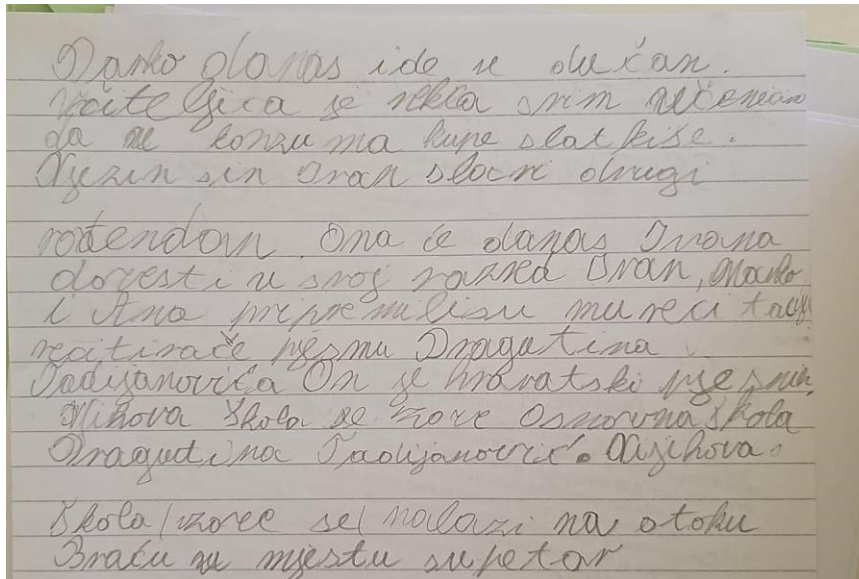 Danko danas ide u dućan.
Učiteljica je rekla svim učenicima
da u konzuma kupe slatkiše.
Njezin sin Ivan slavi drugi
rođendan. Ona će danas Ivana
dovesti u svoj razred Ivan, Marko
i Ana pripremili su mu recitaciju
recitirače pjesmu Dragutina
Tadijanovića On je hravatski pjesnik,
Nihova škola se zove Osnovna škola
Dragutina Tadijanović. Njihova.
Škola zove se nalazi na otoku
Braću u mjestu supetar